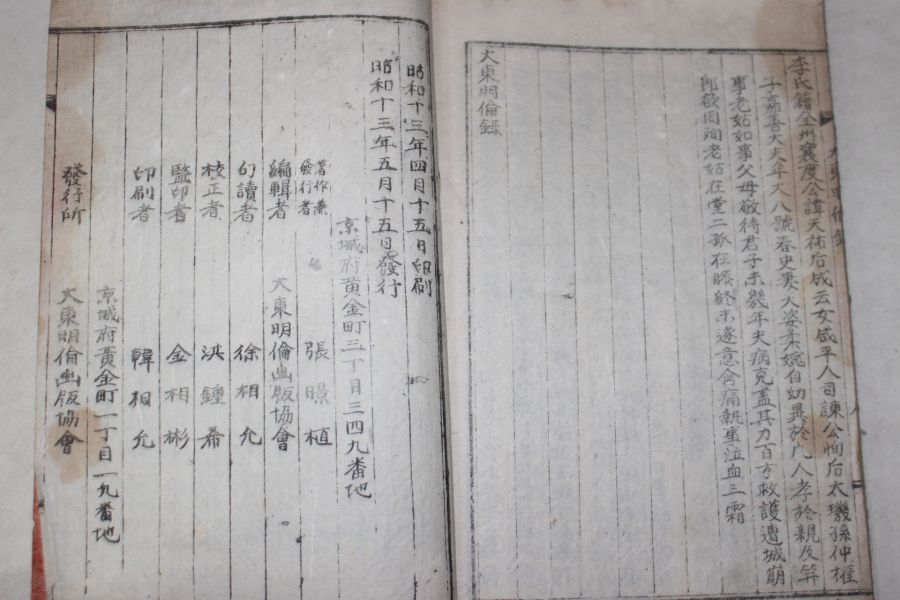 李氏籍全州襄度公諱天祐后成云女咸平人司諫公恂后太璣孫仲權
子嘉善大夫年大八號春史妻大姿柔婉自幼異於凡人孝於親及笄
事老姑如事父母敬待君子未幾年夫病克盖其力百方救護遭城崩
即欲同殉老姑在堂二孤在膝終未遂意含痛執喪泣血三霜
大東明倫錄
昭和十三年四月十五日印刷
昭和十三年五月十五日發行
京城府黃金町三丁目三四九番地
著作兼發行者 張暻植
編輯者 大東明倫出版協會
句讀者 徐相允
校正者 洪鍾希
監印者 金相彬
印刷者 韓相允
京城府黃金町一丁目一九番地
發行所 大東明倫出版協會